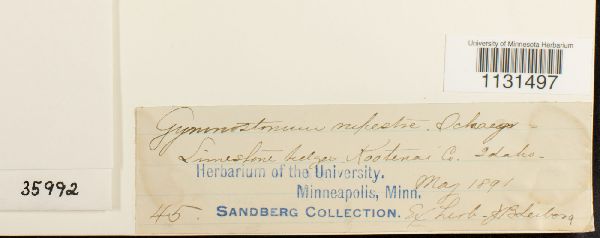 University of Minnesota Herbarium
1131497
Gymnostomum rupestre. Schaegr -
Limestone ledges Kootenai Co. Idaho.
Herbarium of the University.
Minneapolis, Minn.
May 1891
45. SANDBERG COLLECTION. Ex Herb.
35992